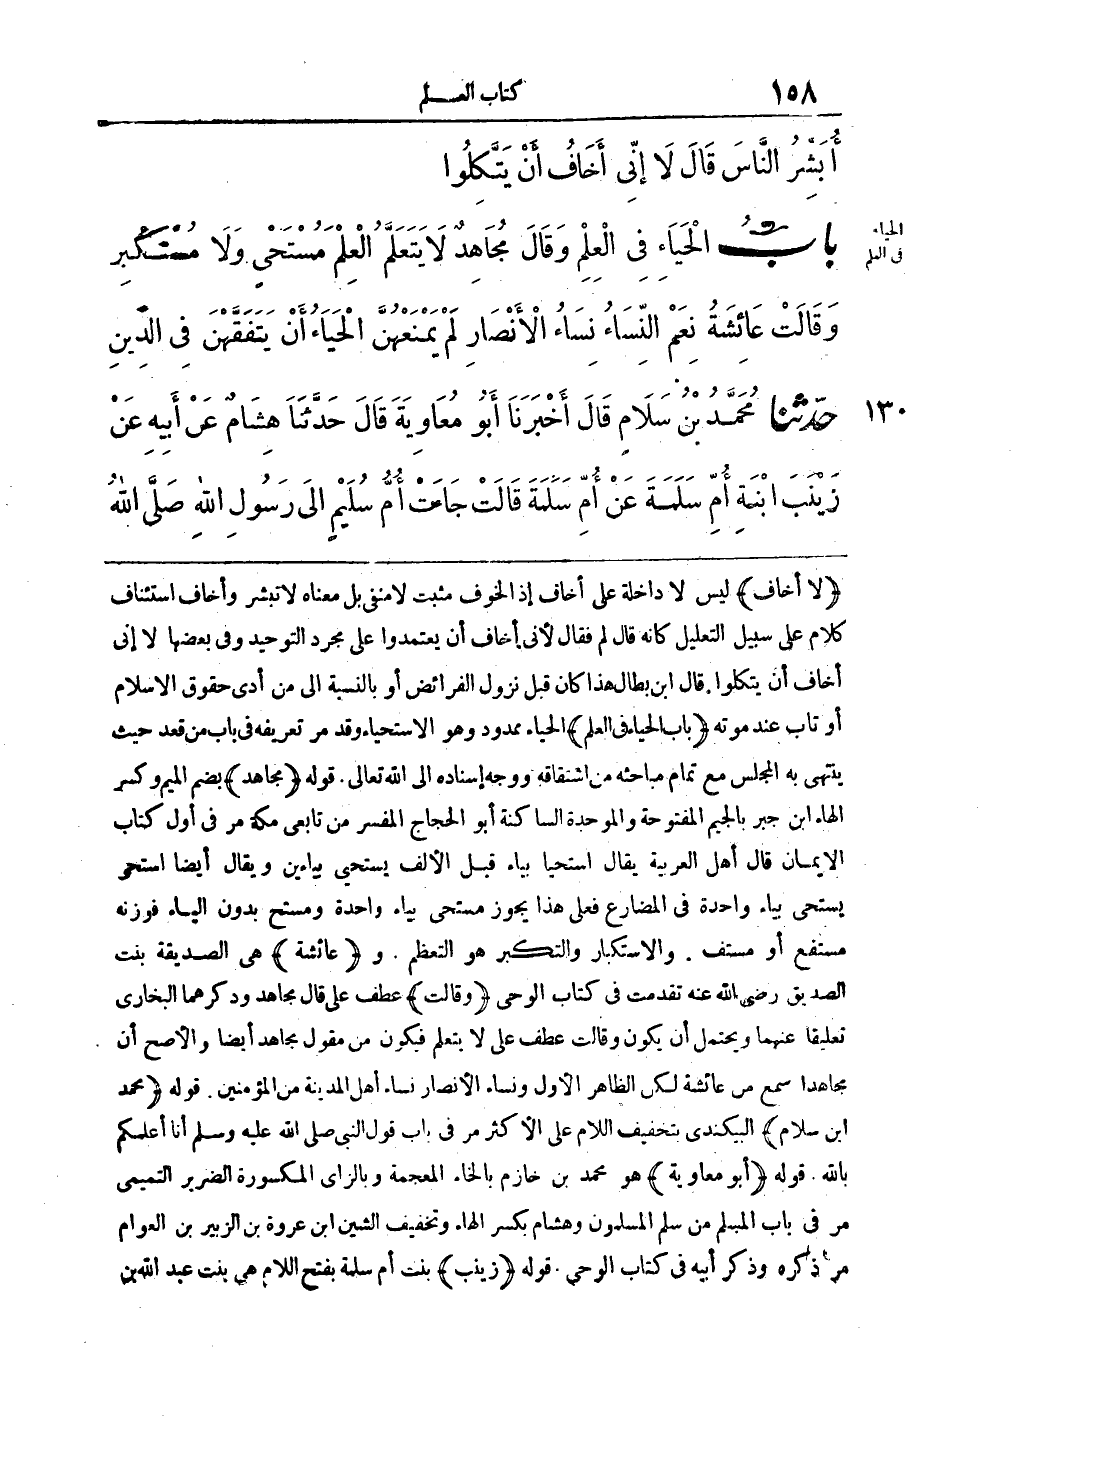 ١٥٨ كتاب العـــلم
أُبَشِّرُ النَّاسَ قَالَ لَا إِنِّى أَخَافُ أَنْ يَتَّكِلُوا
الحياء
فى العلم
بابُ الْحَيَاءِ فِى الْعِلْمِ وَقَالَ مُجَاهِدٌ لَا يَتَعَلَّمُ الْعِلْمَ مُسْتَحْىٍ وَلَا مُسْتَكْبِرٌ
وَقَالَتْ عَائِشَةُ نِعْمَ النِّسَاءُ نِسَاءُ الْأَنْصَارِ لَمْ يَمْنَعْهُنَّ الْحَيَاءُ أَنْ يَتَفَقَّهْنَ فِى الدِّينِ
١٣٠ حَدَّثَنَا مُحَمَّدُ بْنُ سَلَامٍ قَالَ أَخْبَرَنَا أَبُو مُعَاوِيَةَ قَالَ حَدَّثَنَا هِشَامٌ عَنْ أَبِيهِ عَنْ
زَيْنَبَ ابْنَةِ أُمِّ سَلَمَةَ عَنْ أُمِّ سَلَمَةَ قَالَتْ جَاءَتْ أُمُّ سُلَيْمٍ الَى رَسُولِ اللهِ صَلَّى اللهُ
﴿لا أخاف﴾ ليس لا داخلة على أخاف إذ الخوف مثبت لا منفى بل معناه لا تبشر وأخاف استئناف
كلام على سبيل التعليل كانه قال لم فقال لأنى أخاف أن يعتمدوا على مجرد التوحيد وفى بعضها لا إنى
أخاف أن يتكلوا. قال ابن بطال هذا كان قبل نزول الفرائض أو بالنسبة الى من أدى حقوق الاسلام
أو تاب عند موته ﴿باب الحياء فى العلم﴾ الحياء ممدود وهو الاستحياء وقد مر تعريفه فى باب من قعد حيث
ينتهى به المجلس مع تمام مباحثه من اشتقاقه ووجه إسناده الى الله تعالى. قوله ﴿مجاهد﴾ بضم الميم وكسر
الهاء ابن جبر بالجيم المفتوحة والموحدة الساكنة أبو الحجاج المفسر من تابعى مكة مر فى أول كتاب
الايمـان قال أهل العربية يقال استحيا بياء قبـل الألف يستحيى بياءين ويقال أيضا استحى
يستحى بياء واحدة فى المضارع فعلى هذا يجوز مستحى بياء واحدة ومستح بدون اليـاء فوزنه
مستفع أو مستف . والاستكبار والتكبر هو التعظم . و ﴿عائشة﴾ هى الصـديقة بنت
الصديق رضى الله عنه تقدمت فى كتاب الوحى ﴿وقالت﴾ عطف على قال مجاهد وذكرهما البخارى
تعليقا عنهما ويحتمل أن يكون وقالت عطف على لا يتعلم فيكون من مقول مجاهد أيضا والأصح أن
مجاهدا سمع من عائشة لكن الظاهر الأول ونساء الأنصار نساء أهل المدينة من المؤمنين. قوله ﴿محمد
ابن سلام﴾ البيكندى بتخفيف اللام على الأكثر مر فى باب قول النبى صلى الله عليه وسلم أنا أعلمكم
بالله . قوله ﴿أبو معاوية﴾ هو محمد بن خازم بالخاء المعجمة وبالزاى المكسورة الضرير التميمى
مر فى باب المسلم من سلم المسلمون وهشام بكسر الهاء وتخفيف الشين ابن عروة بن الزبير بن العوام
مر ذكره وذكر أبيه فى كتاب الوحى . قوله ﴿زينب﴾ بنت أم سلمة بفتح اللام هى بنت عبد الله بن